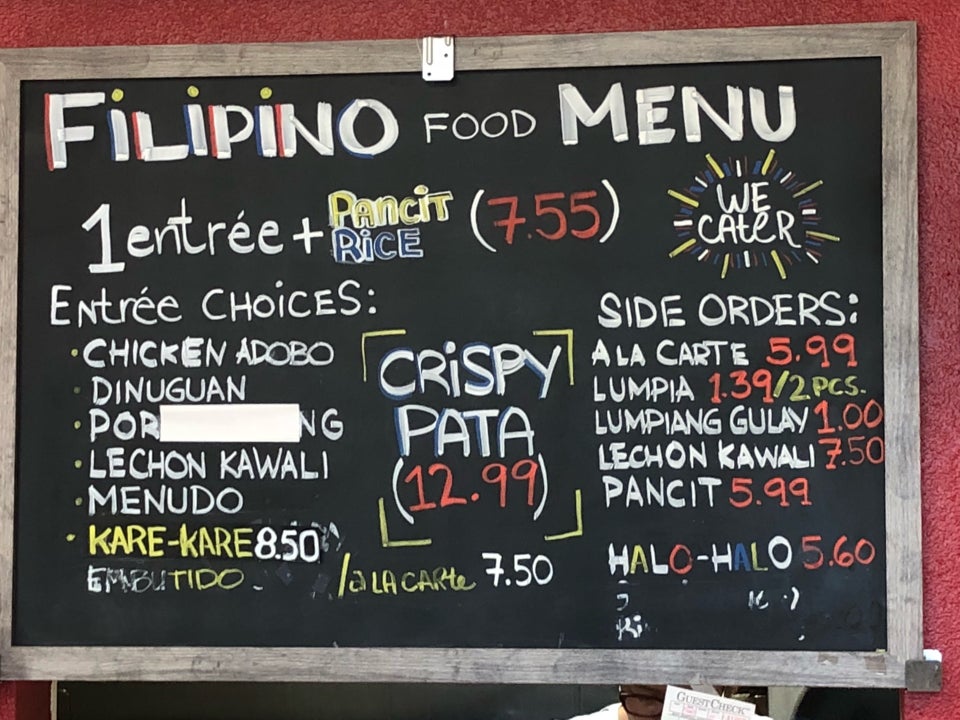 FiLiPiNO FOOD MENU
1 entrée + Pancit RiCE (7.55)
WE CATER
Entrée CHOiCES:
• CHICKEN ADOBO
• DINUGUAN
•
• LECHON KAWALI
• MENUDO
• KARE-KARE 8.50
EMBUTIDO
/à LA CARTe 7.50
CRiSPY
PATA
(12.99)
SIDE ORDERS:
A LA CARTE 5.99
LUMPIA 1.39/2 PCS.
LUMPIANG GULAY 1.00
LECHON KAWALI 7.50
PANCIT 5.99
HALO-HALO 5.60
GUEST CHECK